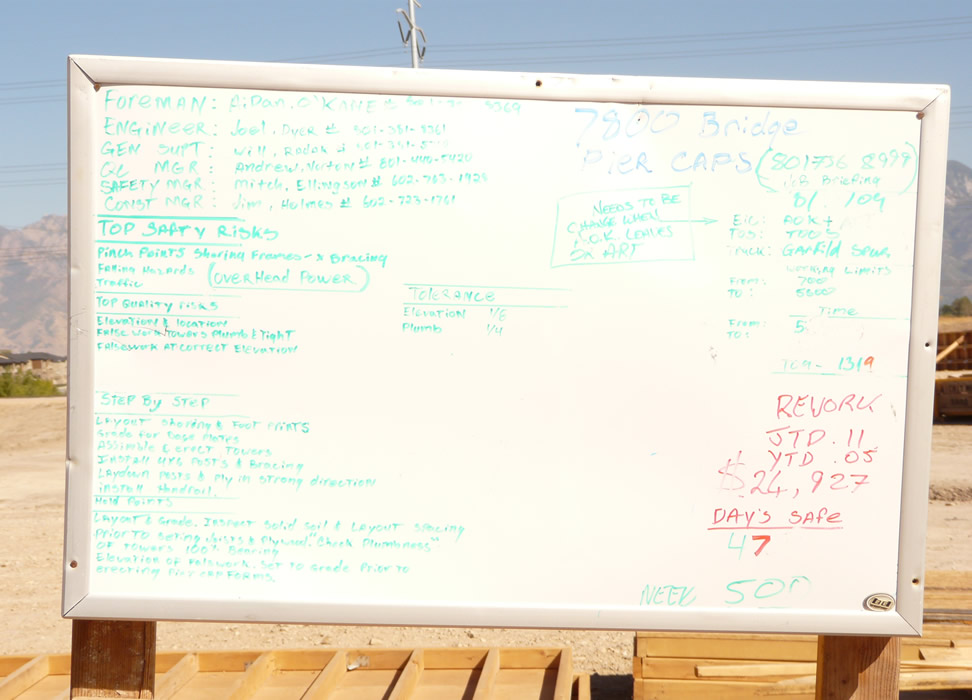 FOREMAN: AiDan, O'KANE # 801-
ENGINEER: Joel, Dyer # 801-381-8361
GEN SUPT: Will, Rodak # 801-381-
QC MGR: Andrew, Norton # 801-440-5420
SAFETY MGR: Mitch, Ellingson # 602-763-1923
CONST MGR: Jim, Holmes # 602-723-1761
TOP SAFTY RISKS
Pinch Points Shoring Frames-x Bracing
Falling Hazards (OVERHEAD POWER)
Traffic
TOP QUALITY RISKS
Elevation & location
FALSEWORK TOWERS Plumb & Tight
FALSEWORK AT CORRECT ELEVATION
TOLERANCE
Elevation 1/8
Plumb 1/4
STEP BY STEP
LAYOUT SHORING & FOOT PRINTS
Grade for Base Plates
Assimble & erect Towers
INSTALL Posts & Bracing
Laydown Posts & Ply in strong direction
install Handrail.
Hold Points
LAYOUT & Grade. Inspect Solid Soil & LAYOUT SPACING
PRIOR TO Setting Joists & Plywod "Check Plumbness"
OF TOWERS 100% Bearing
Elevation of falswork. Set to grade Prior to
erecting Pier CAP FORMS.
7800 Bridge
PIER CAPS (801736 8999)
Job Briefing
NEEDS TO BE
CHANGE WHEN
A.O.K. LEAVES
OR ART
EIC: AOK
Truck: Garfild Spur
Working Limits
From: 700
TO: 5600
Time
From: 5:
TO:
1319
REWORK
JTD .11
YTD .05
$24,927
DAY'S SAFE
47
NEEK 500